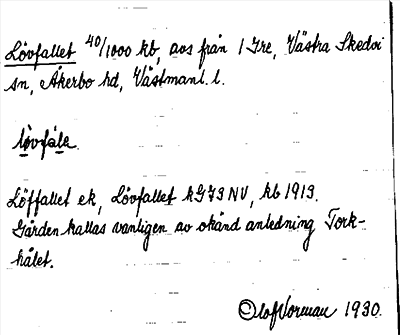 Lövfallet 40/1000 kb, avs från 1 Yre, Västra Skedvi
sn, Åkerbo hd, Västmanl. l.
lövfàle.
Löffallet ek, Lövfallet kG73NV, kb 1913.
Gården kallas vanligen av okänd anledning Tork-
hålet.
Olof Vorman 1930.